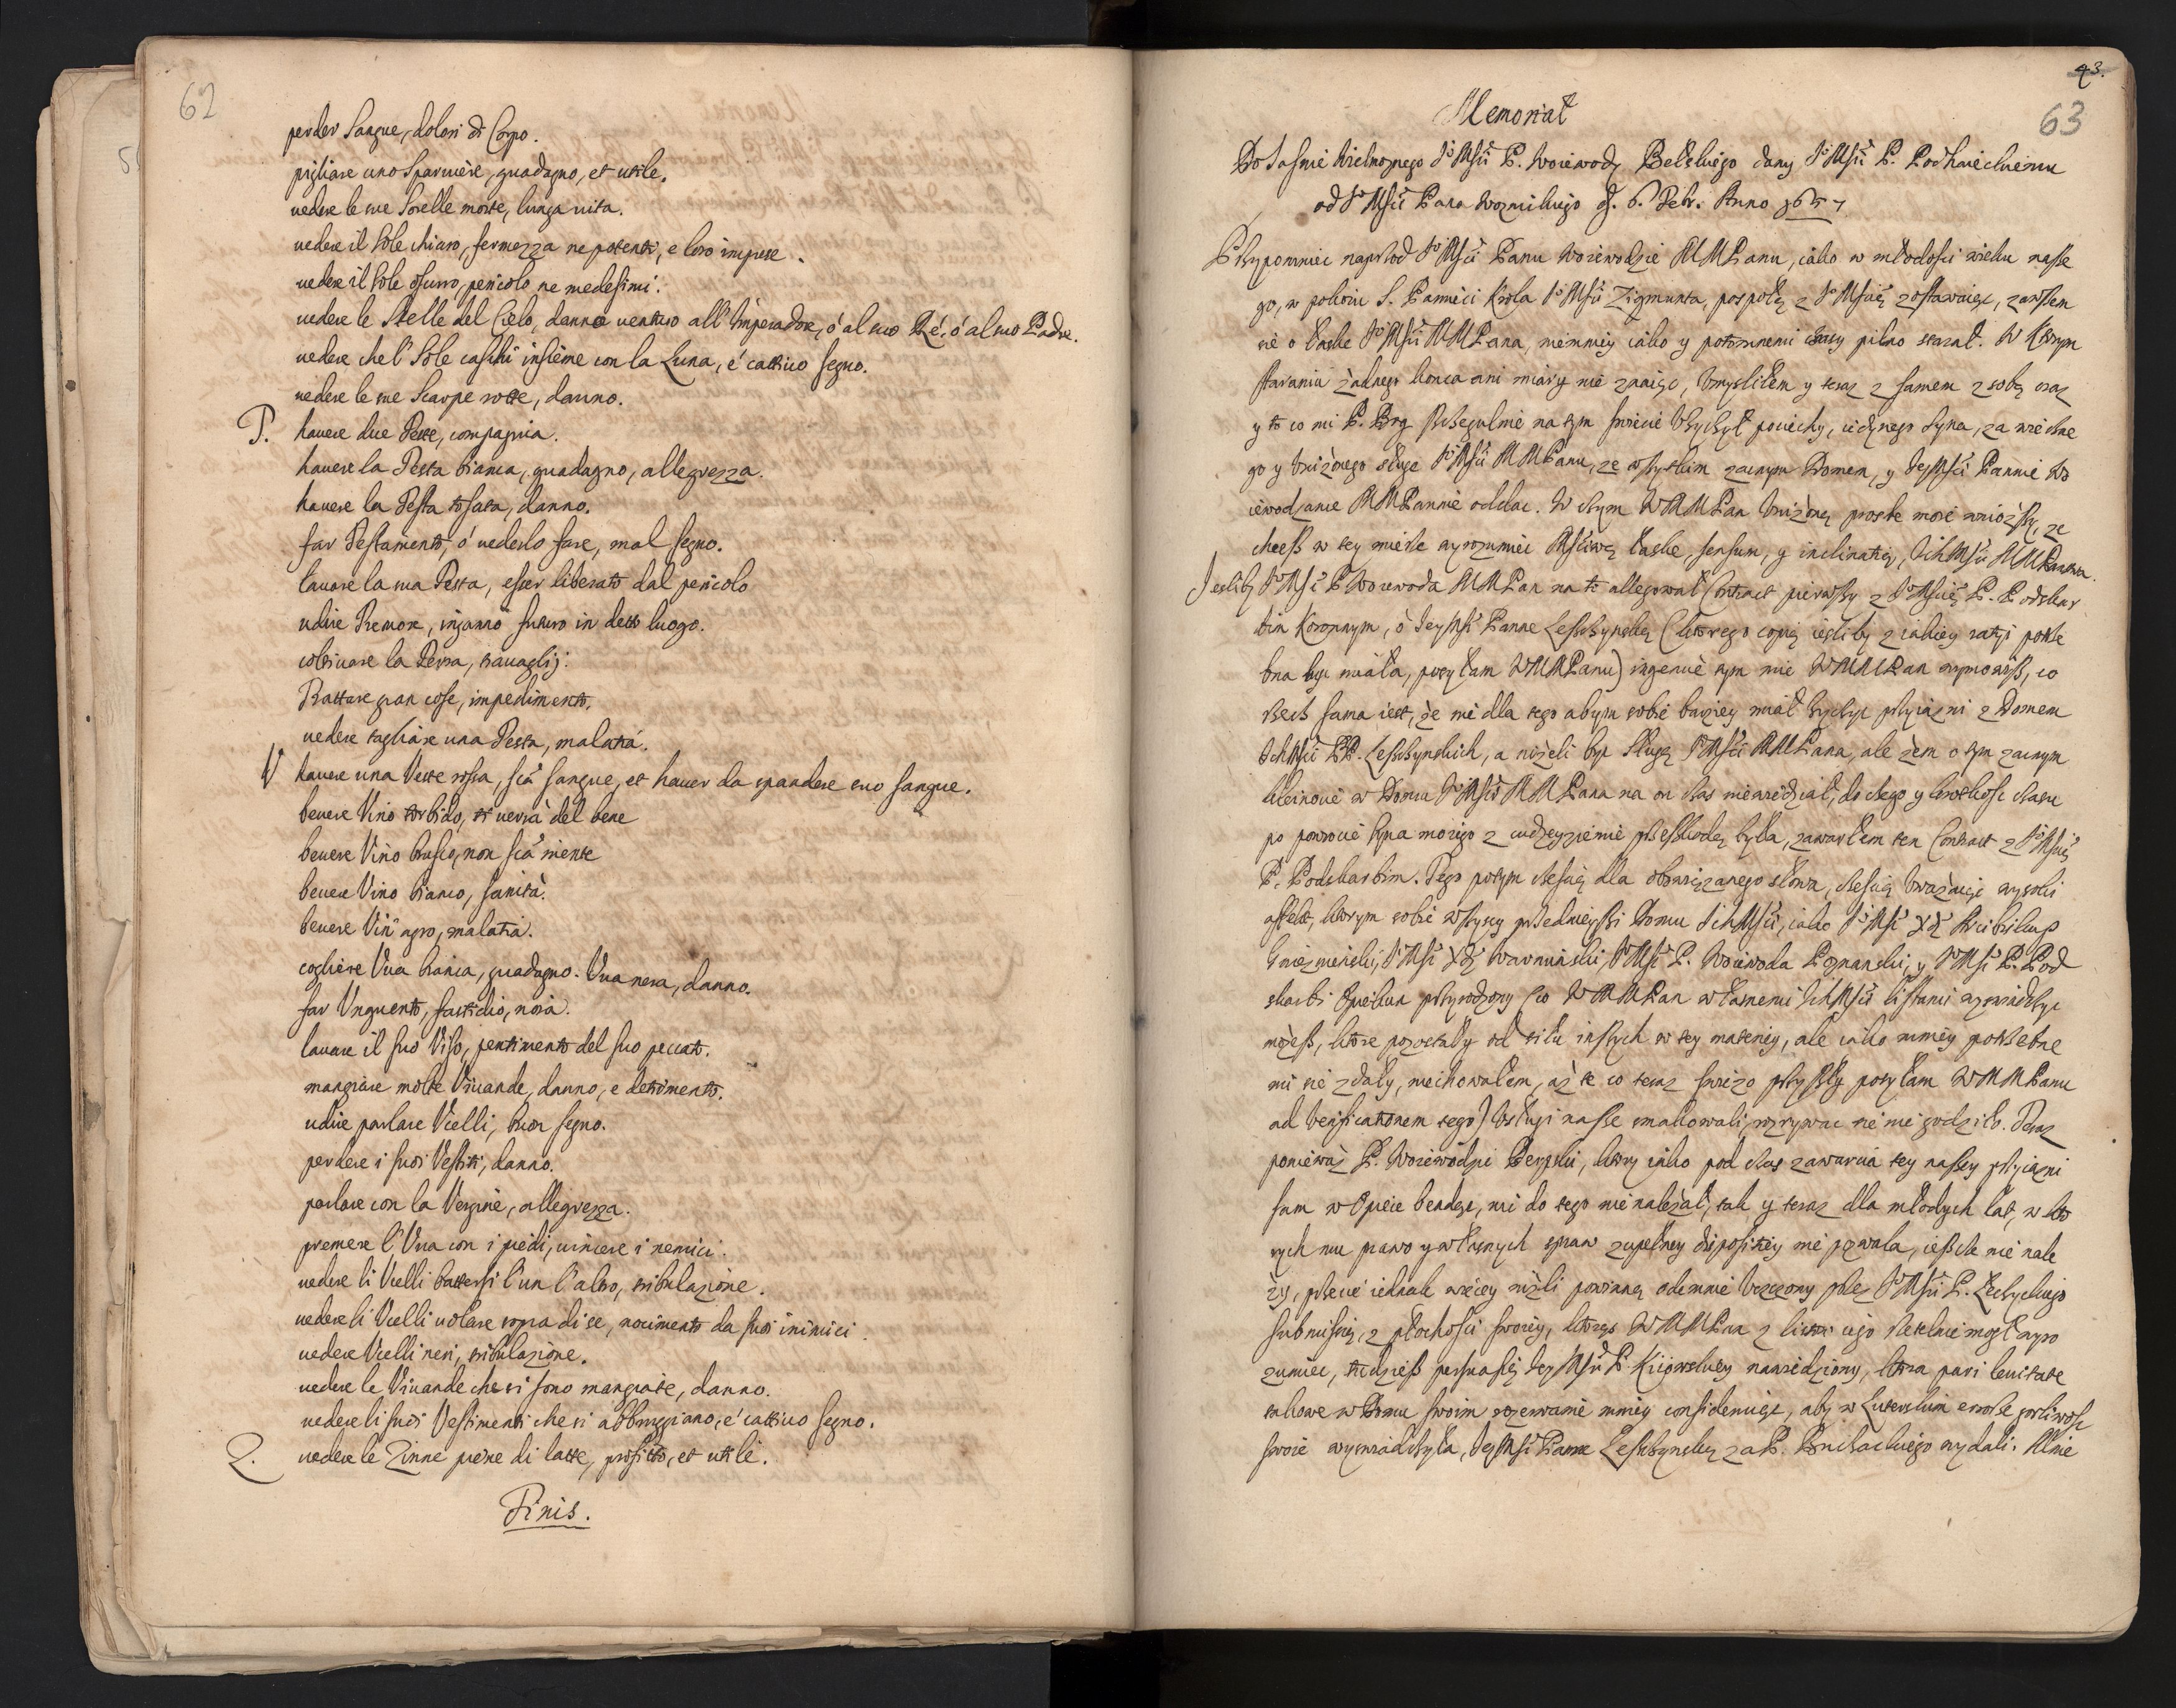 62
perder Sangue, dolori di Corpo.
pigliare uno Sparviere, guadagno, et utile.
vedere le sue Sorelle morte, lunga vita.
vedere il Sole chiaro, fermezza ne potenti, e loro imprese.
vedere il Sole oscuro, pericolo ne medesimi.
vedere le Stelle del Cielo, danno venturo all' Imperadore, ó al suo Ré, ó al suo Padre.
vedere che l' Sole caschi insieme con la Luna, é cattivo segno.
vedere le sue Scarpe rotte, danno.
T. havere due Teste, compagnia.
havere la Testa bianca, guadagno, allegrezza.
havere la Testa tosata, danno.
far Testamento, ó vederlo fare, mal segno.
lavare la sua Testa, esser liberato dal pericolo
udire Tremore, inganno futuro in detto luogo.
coltivare la Terra, travaglij.
Trattare gran cose, impedimento.
vedere tagliare una Testa, malatia.
V havere una Veste rossa, sia sangue, et haver da spandere suo sangue.
bevere Vino torbido, ti verrà del bene
bevere Vino brusco, non sia niente
bevere Vino bianco, sanità.
bevere Vin agro, malatia.
cogliere Uva bianca, guadagno. Uva nera, danno.
far Unguento, fastidio, noia.
lavare il suo Viso, pentimento del suo peccato.
mangiare molte Vivande, danno, e detrimento.
udire parlare Ucelli, buon segno.
perdere i suoi Vestiti, danno.
parlare con la Vergine, allegrezza.
premere l' Uva con i piedi, vincere i nemici.
vedere li Ucelli battersi l'un l'altro, tribulazione.
vedere li Ucelli volare sopra di se, nocimento da suoi inimici.
vedere Ucelli neri, tribulazione.
vedere le Vivande che si sono mangiate, danno.
vedere li suoi Vestimenti che si abbruggiano, é cattivo segno.
Z. vedere le Zinne piene di latte, profitto, et utile.
Finis.
43.
63
Memoriał
Do Jasnie Wielmoznego Jo Msci P. Woiewody Bełskiego dany Jo Msci P.
od Jo Msci Pana d. 6. Febr. Anno
Przypomniec naprzod Jo Msci Panu Woiewodzie MMPanu, iako w młodosci wieku nasze
go, w pokoiu S. Pamięci Krola Jo Msci Zigmunta, pospołu z Jo Mscią zostawaiąc, zawszem
się o łaske Jo Msci MMPana, niemniey iako y potomnemi czasy pilno starał. W ktorym
staraniu żadnego konca ani miary nie znaiąc, umysliłem y teraz z samem z sobą oraz
y to co mi P. Bog szczegulnie na tym swiecie użyczył pociechy, iedynego syna, za wieczne
go y unizonego sługe Jo Msci MMPanu, ze wszytkim zacnym Domem, y JeyMsci Pannie Wo
iewodzance MMPannie oddac. W czym WMMPan uniżoną prosbe moie wniozszy, ze
chcesz w tey mierze wyrozumiec Msciwą łaske, sensum, y inclinatią, IchMsci MMPanstwa.
Jesliby Jo Msc P Woiewoda MMPan na to allegował Contract pierwszy z Jo Mscią P. Podskar
bim Koronnym, o JeyMsc Panne Leszczynską (ktorego copią iesliby z iakiey ratij potrze
bna byc miała, posyłam WMMPanu) ingenuè tym mie WMMPan wymowisz, co
rzecz sama iest, że nie dla tego abym sobie barziey miał życzyc przyiazni z Domem
IchMsci PP. Leszczynskich, a niżeli byc sługą Jo Msci MMPana, ale żem o tym zacnym
kleinocie w Domu Jo Msci MMPana na on czas niewiedział, do czego y krotkosc czasu
po powrocie syna moiego z cudzeyziemie przeszkodą była, zawarłem ten Contract z Jo Mscią
P. Podskarbim. Tego potym częscią dla obowiązanego słowa, częscią uważaiąc wysoki
affekt, ktorym sobie wszyscy przednieyszi Domu IchMsci, iako Jo Msc Xdz Arcibiskup
Gnieznienski, Jo Msc Xdz Warminski, Jo Msc P. Woiewoda Poznanski, y Jo Msc P. Pod
skarbi Opiekun przyrodzony (co WMMPan własnemi IchMsci listami wyswiadczyc
możesz, ktore pozostały od siłu inszych w tey materiey, ale iako mniey potrzebne
mi się zdały, niechowałem, aż te co teraz swiezo przyszły posyłam WMMPanu
ad verificationem tego) usługi nasze smakowali, rozrywac sie nie godziło. Teraz
ponieważ P. Woiewodzic Derpski, ktory iako pod czas zawarcia tey naszey przyiazni
sam w Opiece bendąc, nic do tego nie należał, tak y teraz dla młodych lat, w kto
rych mu prawo y własnych spraw zupełney dispositiey nie pozwala, ieszcze nie nale
ży, przecie iednak więcey niżli powinną odemnie przez Jo Msci P.
submissią, z płochosci swoiey, ktorego WMMPan z listu iego rzetelnie mogł wyro
zumiec, persuasią JeyMsci P. Kijowskiey nawiedziony, ktora pari levitate
takowe w Domu swoim rozerwanie mniey consideruiąc, aby w Luterskim errorze gorliwosc
swoie wyswiadczyła, JeyMsc Panne Leszczynską za P. wydali. Mnie